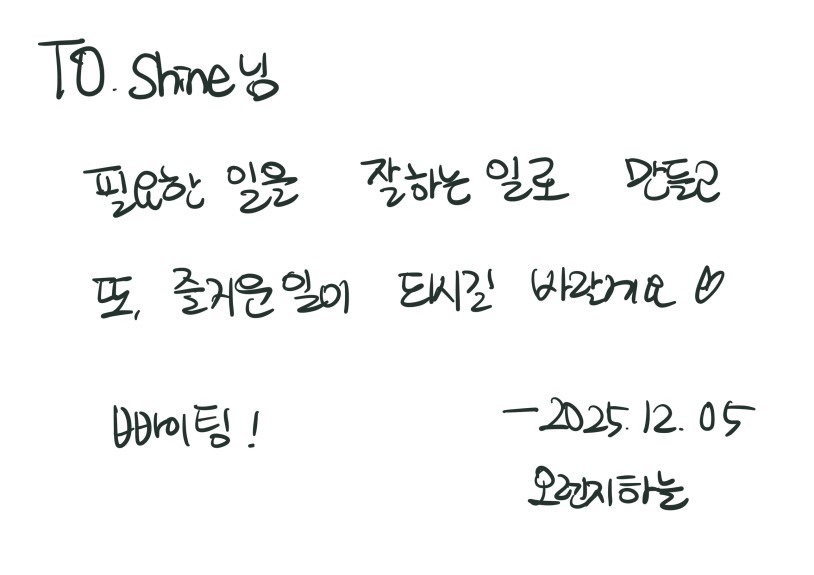 TO. Shine님
필요한 일을 잘하는 일로 만들고
또, 즐거운 일이 되시길 바랄게요 ♡
빠이팅!
- 2025. 12. 05
오렌지하늘